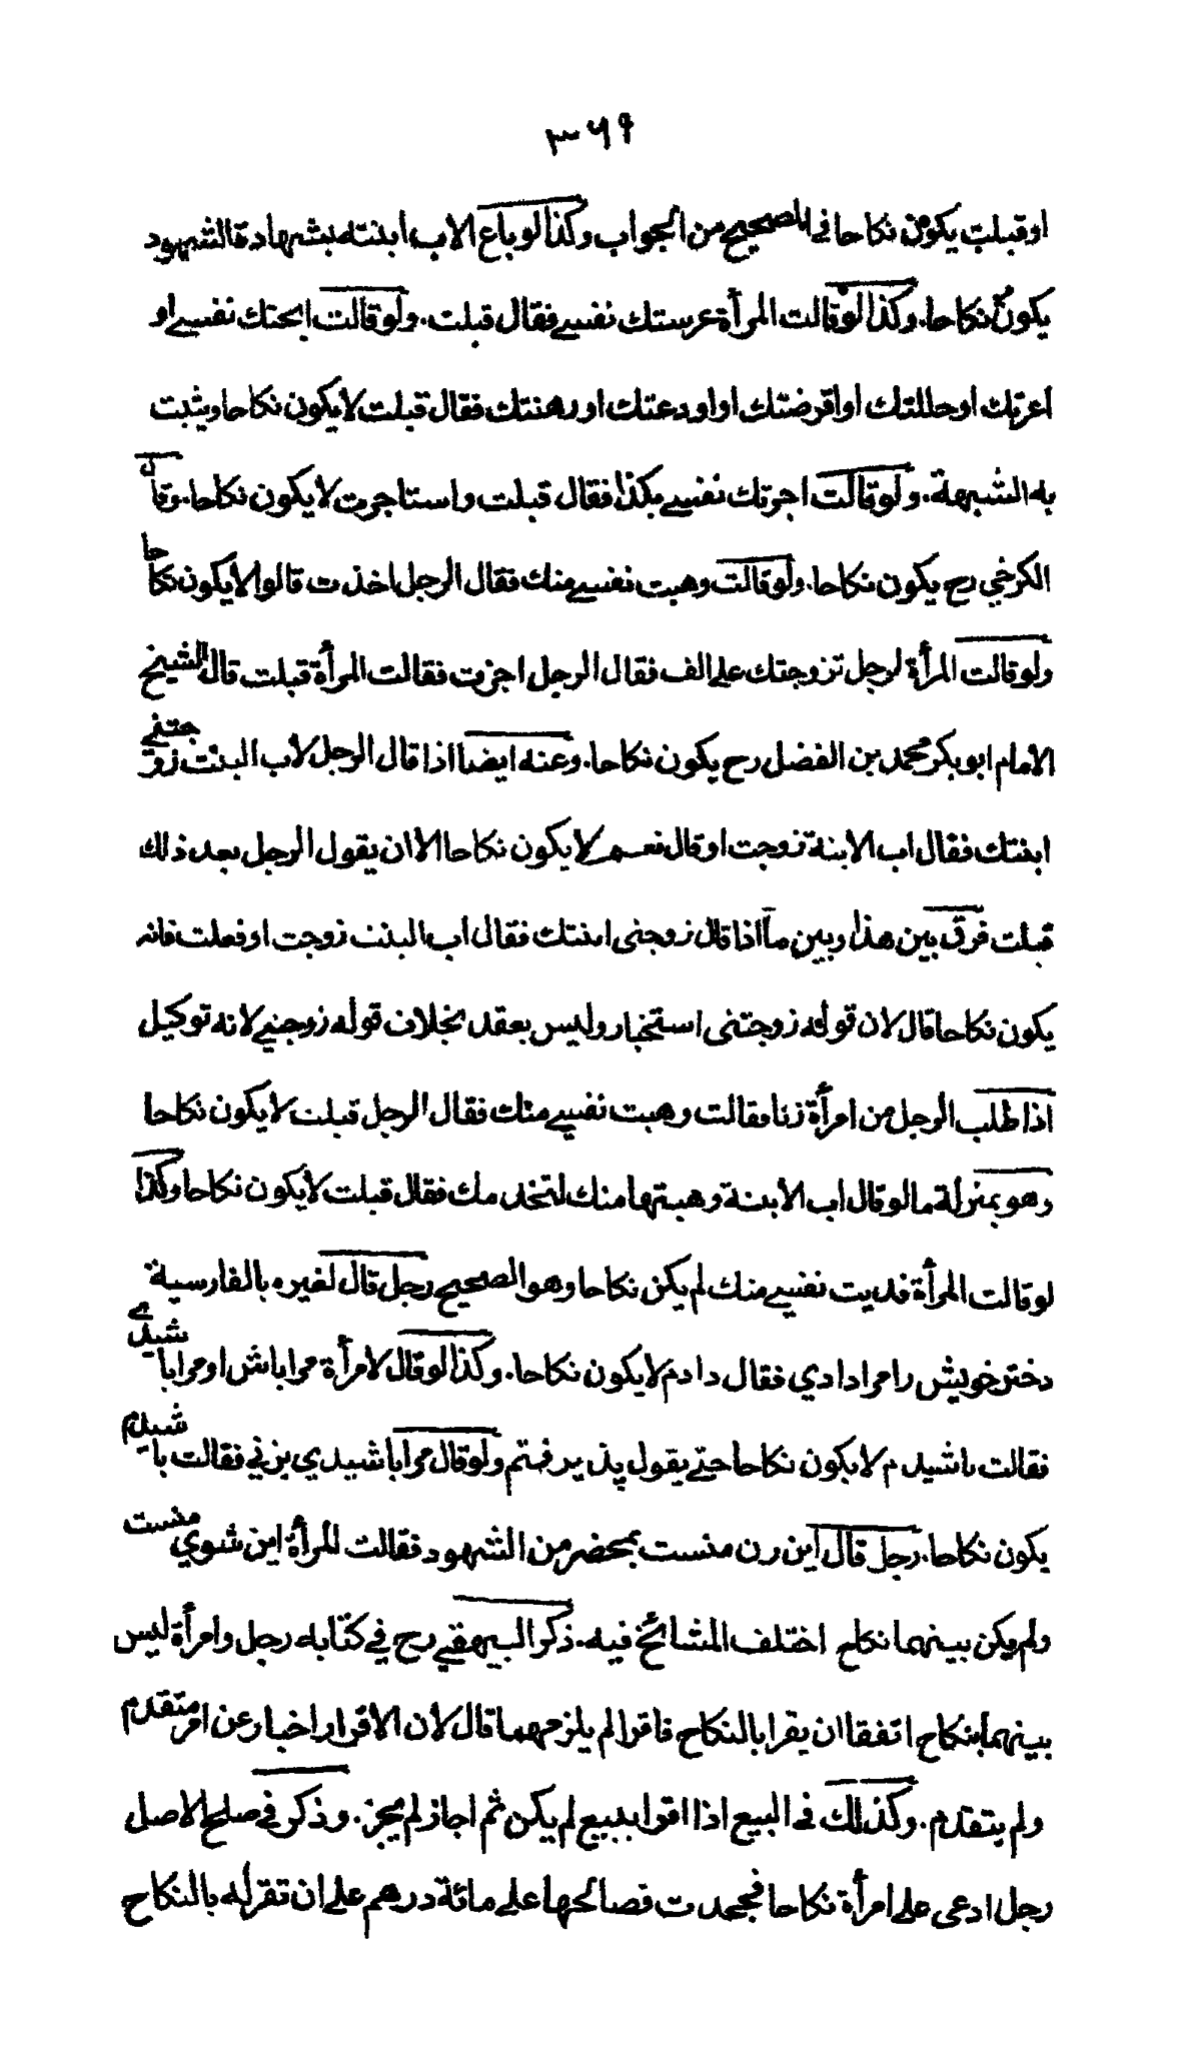 ٣٦٩
او قبلت يكون نكاحا في الصحيح من الجواب وكذا لو باع الاب ابنته بشهادة الشهود
يكون نكاحا. وكذا لو قالت المرأة عرستك نفسي فقال قبلت. ولو قالت ابحتك نفسي او
اعرتك او حللتك او اقرضتك او اودعتك او رهنتك فقال قبلت لا يكون نكاحا ويثبت
به الشبهة. ولو قالت اجرتك نفسي بكذا فقال قبلت واستاجرت لا يكون نكاحا. وقال
الكرخي رح يكون نكاحا. ولو قالت وهبت نفسي منك فقال الرجل اخذت قالوا لا يكون نكاحا
ولو قالت المرأة لرجل تزوجتك على الف فقال الرجل اجزت فقالت المرأة قبلت قال الشيخ
الامام ابو بكر محمد بن الفضل رح يكون نكاحا. وعنه ايضا اذا قال الرجل لأب البنت زوجتني
ابنتك فقال اب الابنة زوجت او قال نعم لا يكون نكاحا الا ان يقول الرجل بعد ذلك
قبلت فرق بين هذا وبين ما اذا قال زوجني ابنتك فقال اب البنت زوجت او فعلت فانه
يكون نكاحا قال لان قوله زوجتني استخبار وليس بعقد بخلاف قوله زوجني لانه توكيل
اذا طلب الرجل من امرأة زنا فقالت وهبت نفسي منك فقال الرجل قبلت لا يكون نكاحا
وهو بمنزلة ما لو قال اب الابنة وهبتها منك لتخدمك فقال قبلت لا يكون نكاحا وكذا
لو قالت المرأة فديت نفسي منك لم يكن نكاحا وهو الصحيح رجل قال لغيره بالفارسية
دختر خويش را مرا دادي فقال دادم لا يكون نكاحا. وكذا لو قال لامرأة مرا باش او مرا باشيدي
فقالت باشيدم لا يكون نكاحا حتى يقول پذيرفتم ولو قال مرا باشيدي بزني فقالت باشيدم
يكون نكاحا. رجل قال اين زن منست بمحضر من الشهود فقالت المرأة اين شوي منست
ولم يكن بينهما نكاح اختلف المشائخ فيه. ذكر البيهقي رح في كتابه رجل وامرأة ليس
بينهما نكاح اتفقا ان يقرا بالنكاح فاقرا لم يلزمهما قال لأن الاقرار اخبار عن امر متقدم
ولم يتقدم. وكذلك في البيع اذا اقرا ببيع لم يكن ثم اجاز لم يجز. وذكر في صلح الاصل
رجل ادعى على امرأة نكاحا فجحدت فصالحها على مائة درهم على ان تقر له بالنكاح